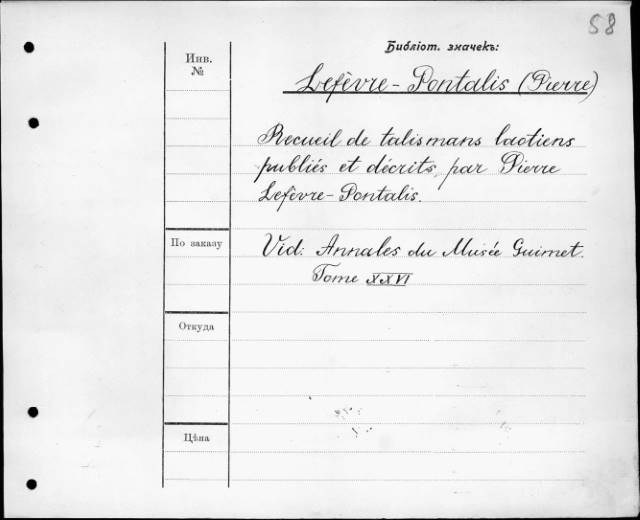 58
Библіот. значекъ:
Инв.
№
Lefèvre-Pontalis (Pierre)
Recueil de talismans laotiens
publiés et décrits, par Pierre
Lefèvre-Pontalis.
По заказу
Vid: Annales du Musée Guimet.
Tome XXVI
Откуда
Цѣна